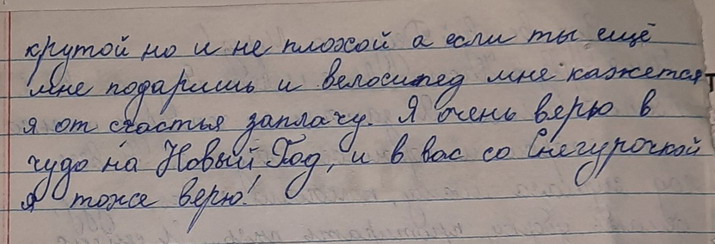 крутой но и не плохой а если ты ещё
мне подаришь и велосипед мне кажется
я от счастья заплачу. Я очень верю в
чудо на Новый Год, и в вас со Снегурочкой
я тоже верю!